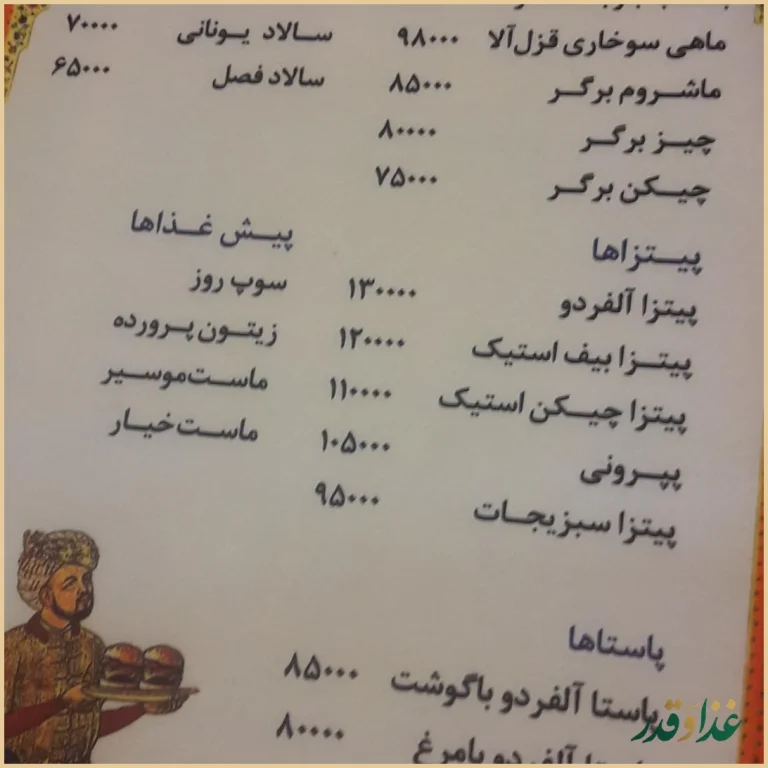 ماهی سوخاری قزل‌آلا ۹۸۰۰۰
ماشروم برگر ۸۵۰۰۰
چیز برگر ۸۰۰۰۰
چیکن برگر ۷۵۰۰۰
پیتزاها
پیتزا آلفردو ۱۳۰۰۰۰
پیتزا بیف استیک ۱۲۰۰۰۰
پیتزا چیکن استیک ۱۱۰۰۰۰
پپرونی ۱۰۵۰۰۰
پیتزا سبزیجات ۹۵۰۰۰
پاستاها
پاستا آلفردو باگوشت ۸۵۰۰۰
آلفردو بامرغ ۸۰۰۰۰
سالاد یونانی ۷۰۰۰۰
سالاد فصل ۶۵۰۰۰
پیش غذاها
سوپ روز
زیتون پرورده
ماست‌موسیر
ماست‌خیار
غذا و قدر